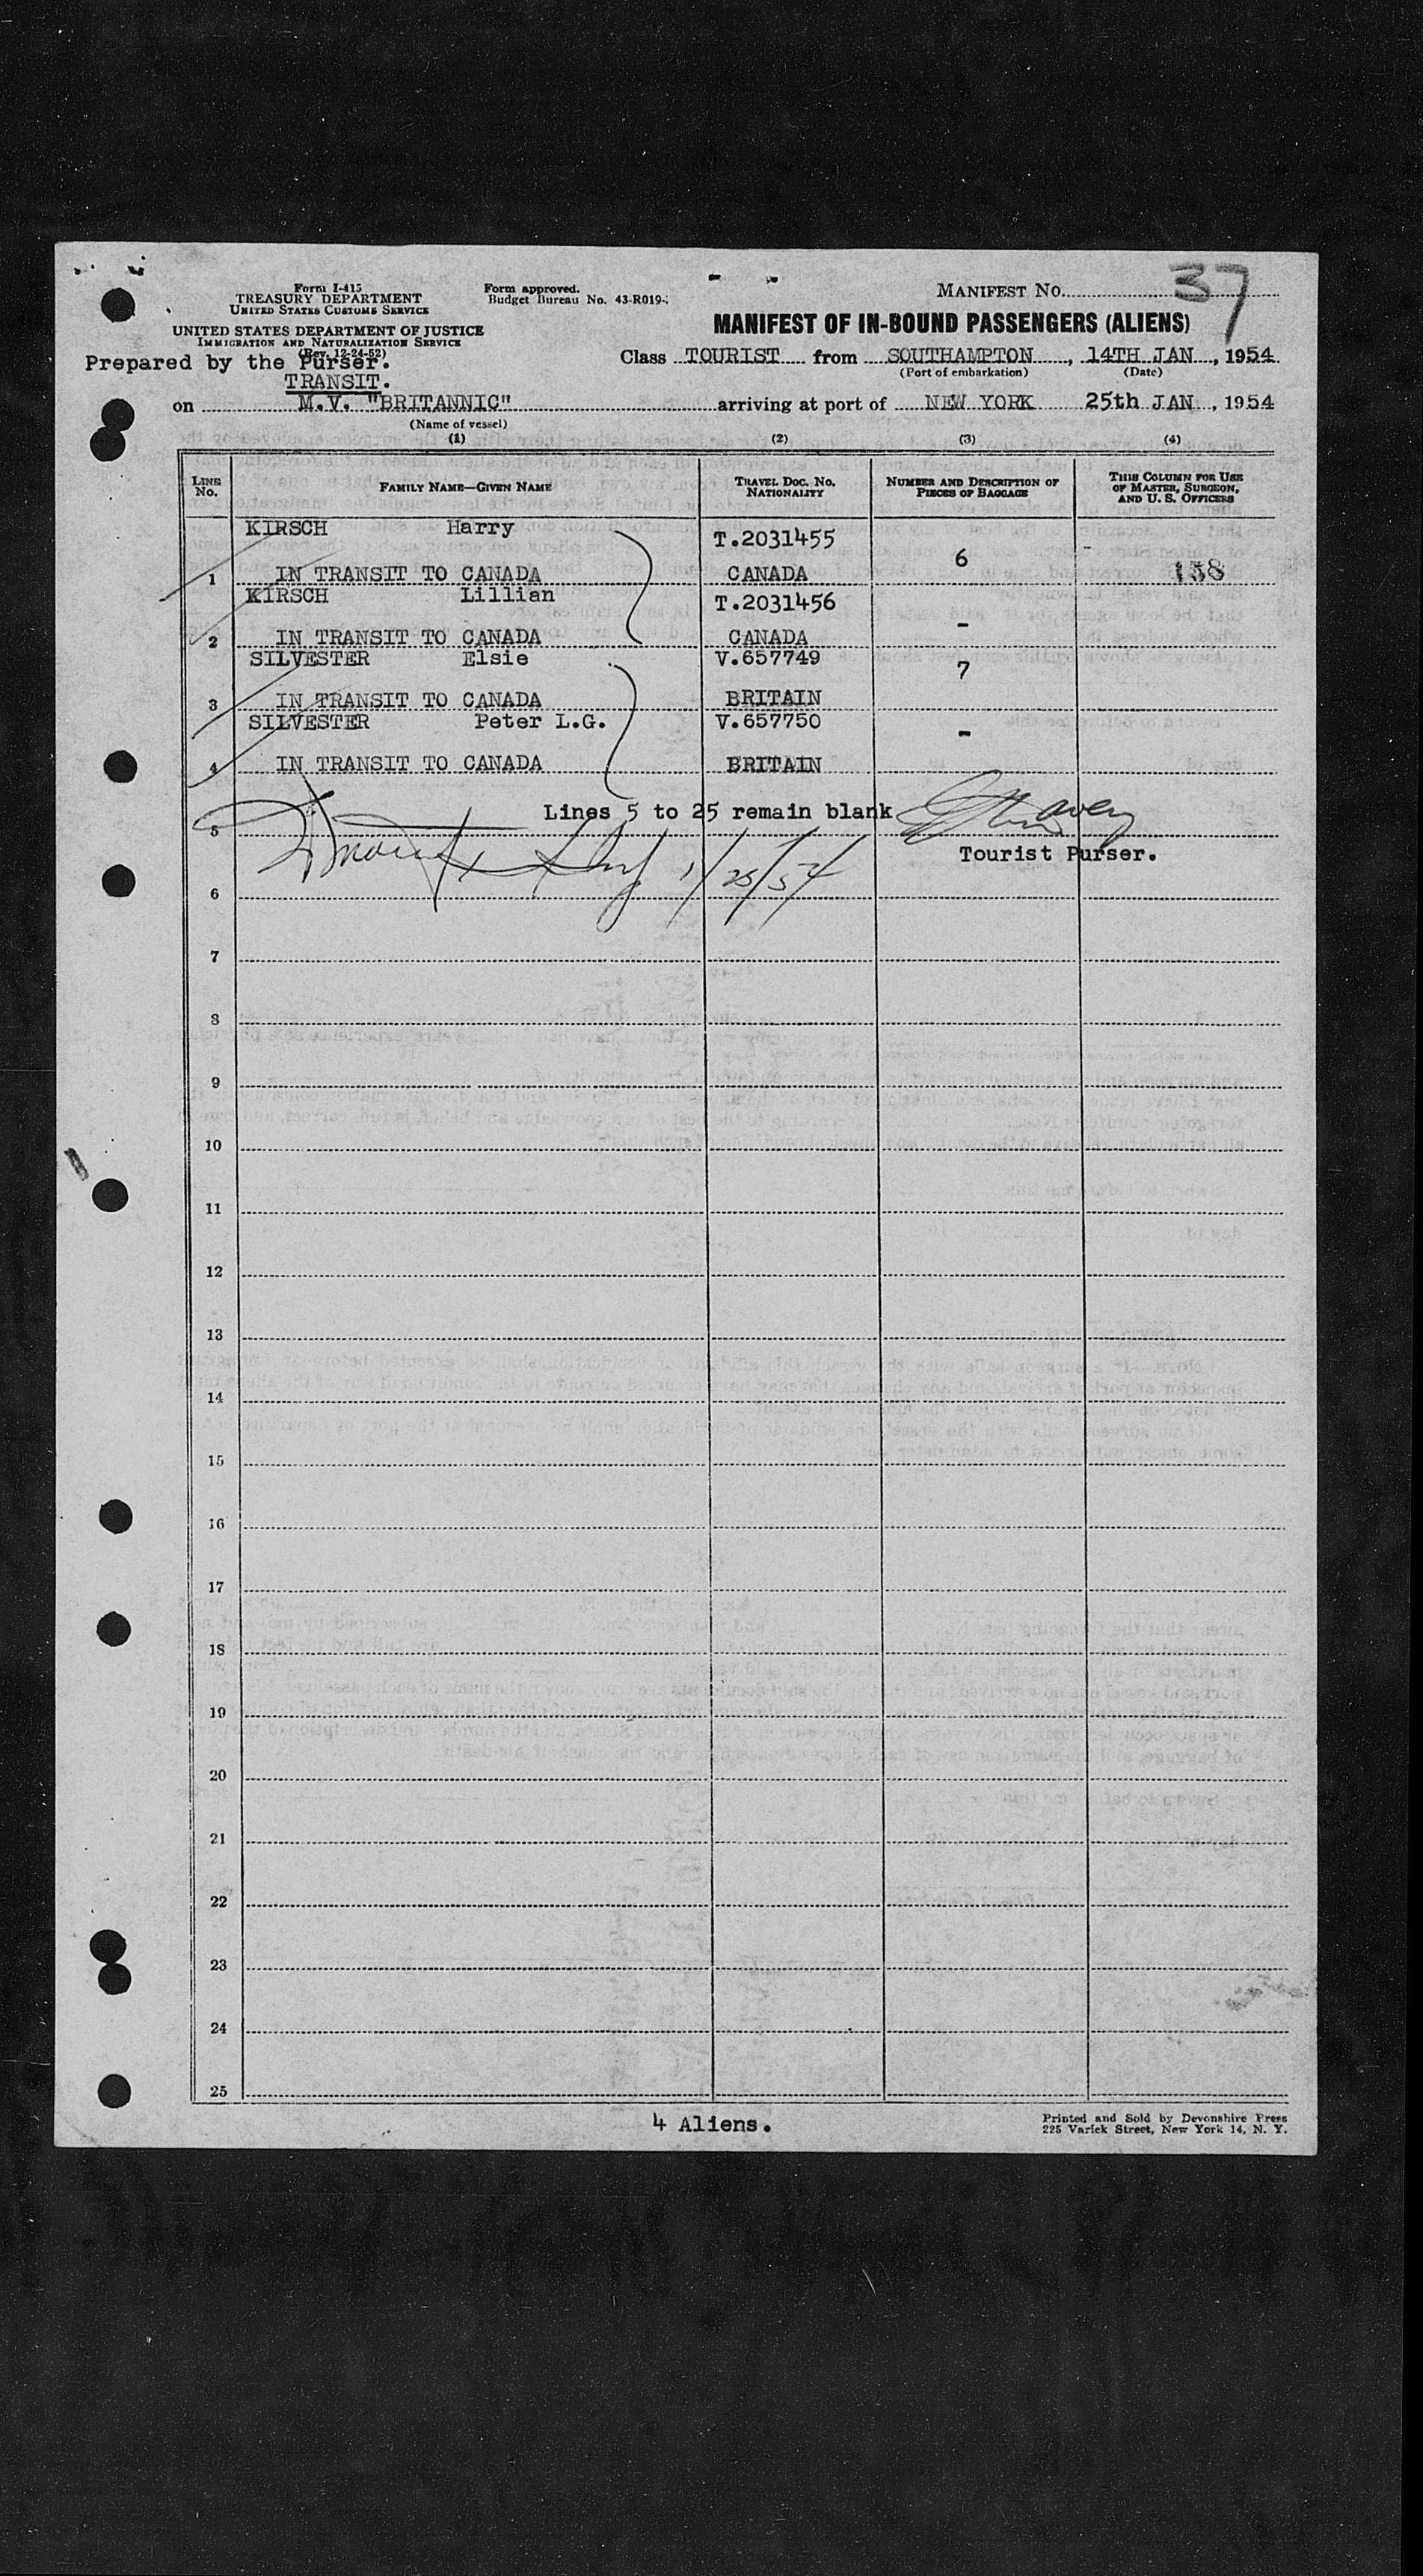 Form I-415
TREASURY DEPARTMENT
UNITED STATES CUSTOMS SERVICE
UNITED STATES DEPARTMENT OF JUSTICE
IMMIGRATION AND NATURALIZATION SERVICE
(Rev. 12-24-52)
Form approved.
Budget Bureau No. 43-R019-
MANIFEST NO. 37
MANIFEST OF IN-BOUND PASSENGERS (ALIENS)
Prepared by the Purser.
TRANSIT.
Class TOURIST from SOUTHAMPTON, 14TH JAN, 1954
(Port of embarkation) (Date)
on M.V. "BRITANNIC" arriving at port of NEW YORK 25th JAN, 1954
(Name of vessel)
(1) (2) (3) (4)
LINE No. FAMILY NAME—GIVEN NAME TRAVEL DOC. NO. NATIONALITY NUMBER AND DESCRIPTION OF PIECES OF BAGGAGE THIS COLUMN FOR USE OF MASTER, SURGEON, AND U. S. OFFICERS
KIRSCH Harry T.2031455
1 IN TRANSIT TO CANADA CANADA 6 158
KIRSCH Lillian T.2031456
2 IN TRANSIT TO CANADA CANADA -
SILVESTER Elsie V.657749
3 IN TRANSIT TO CANADA BRITAIN 7
SILVESTER Peter L.G. V.657750
4 IN TRANSIT TO CANADA BRITAIN -
Lines 5 to 25 remain blank
5
Tourist Purser.
1/25/54
6
7
8
9
10
11
12
13
14
15
16
17
18
19
20
21
22
23
24
25
4 Aliens.
Printed and Sold by Devonshire Press
225 Varick Street, New York 14, N. Y.